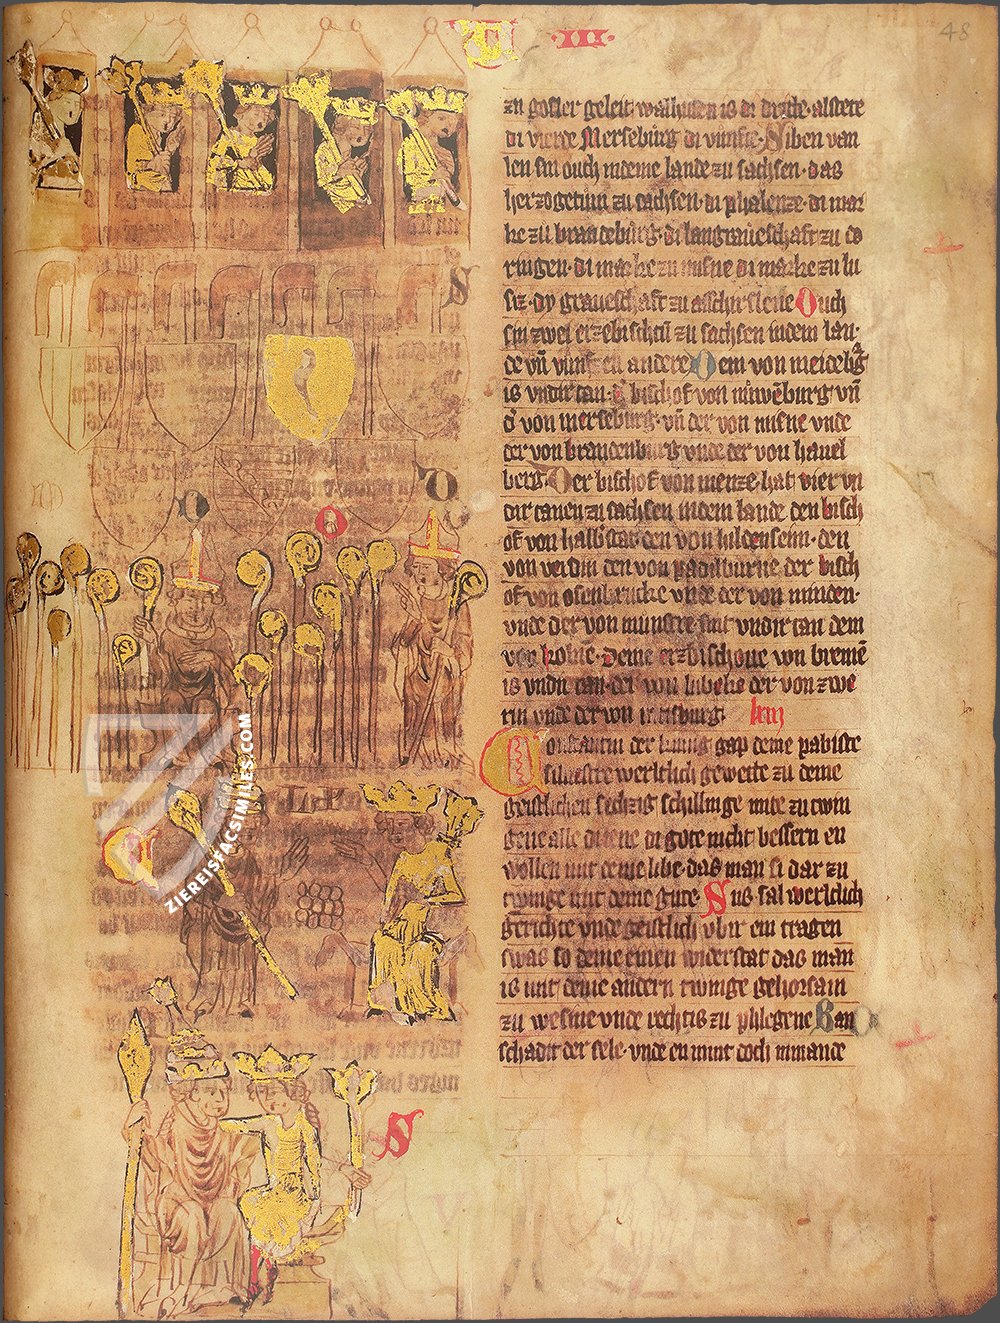 ·III·
48
zu gosler geleit walhusen is di dritte· alstete
di vierde Merseburg di vunfte· Siben van
len sin ouch indeme lande zu sachsen· das
herzogetům zu sachsen· di phalenze· di mar
ke zů brandebůrg· di langraueschaft zu do
ringen· di marke zu misne di marke zu lu
siz· dy graueschaft zu asschirsleue Ouch
sin zwei erzebischtů zu sachsen indem lan·
de vñ vunfzen andere Dem von meideb'g
is vndirtan· d' bischof von nůwēburg vñ
d' von merseburg· vñ der von misne vnde
der von brandenburg vnde der von hauel
berg. Der bischof von menze· hat vier vn
dirtanen zu sachsen indem lande den bisch
of von halb'stat den von hildensein· den
von verdin den von padilburne der bisch
of von osenbrucke vnde der von minden·
vnde der von munstre sint vndirtan dem
von kolne· Deme erzbischoue von bremē
is vndirtan· der von lubeke der von zwe
rin vnde der von racisburg.
Constantin der kunig gap deme pabiste
siluestre werltlich gewette zu deme
geistlichen sechzig schillinge mite zu twin
gene alle di iene di gote nicht bessern en
wollen mit deme libe· das man si dar zu
twinge mit deme gute· Sus sal werltlich
gerichte vnde geistlich vbir ein tragen
swas so deme einen widerstat das man
is mit deme andern twinge gehorsam
zu wesine vnde rechtis zu phlegene Ban
schadit der sele· vnde en nimt doch nimande
S
D
O
D
C
S
ZIEREISFACSIMILES.COM